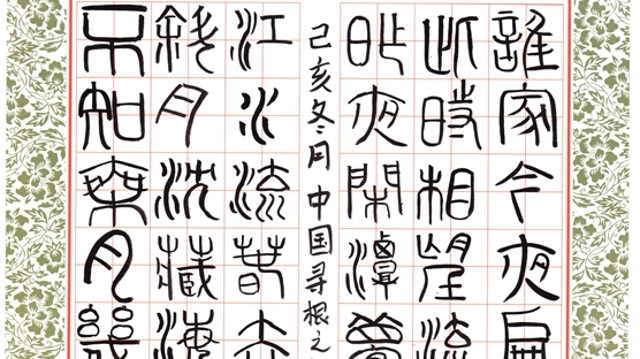 誰家今夜扁
此時相望流
昨夜閒潭夢
己亥冬月中国寻根之
江水流春去
斜月沈藏海
不知乘月幾